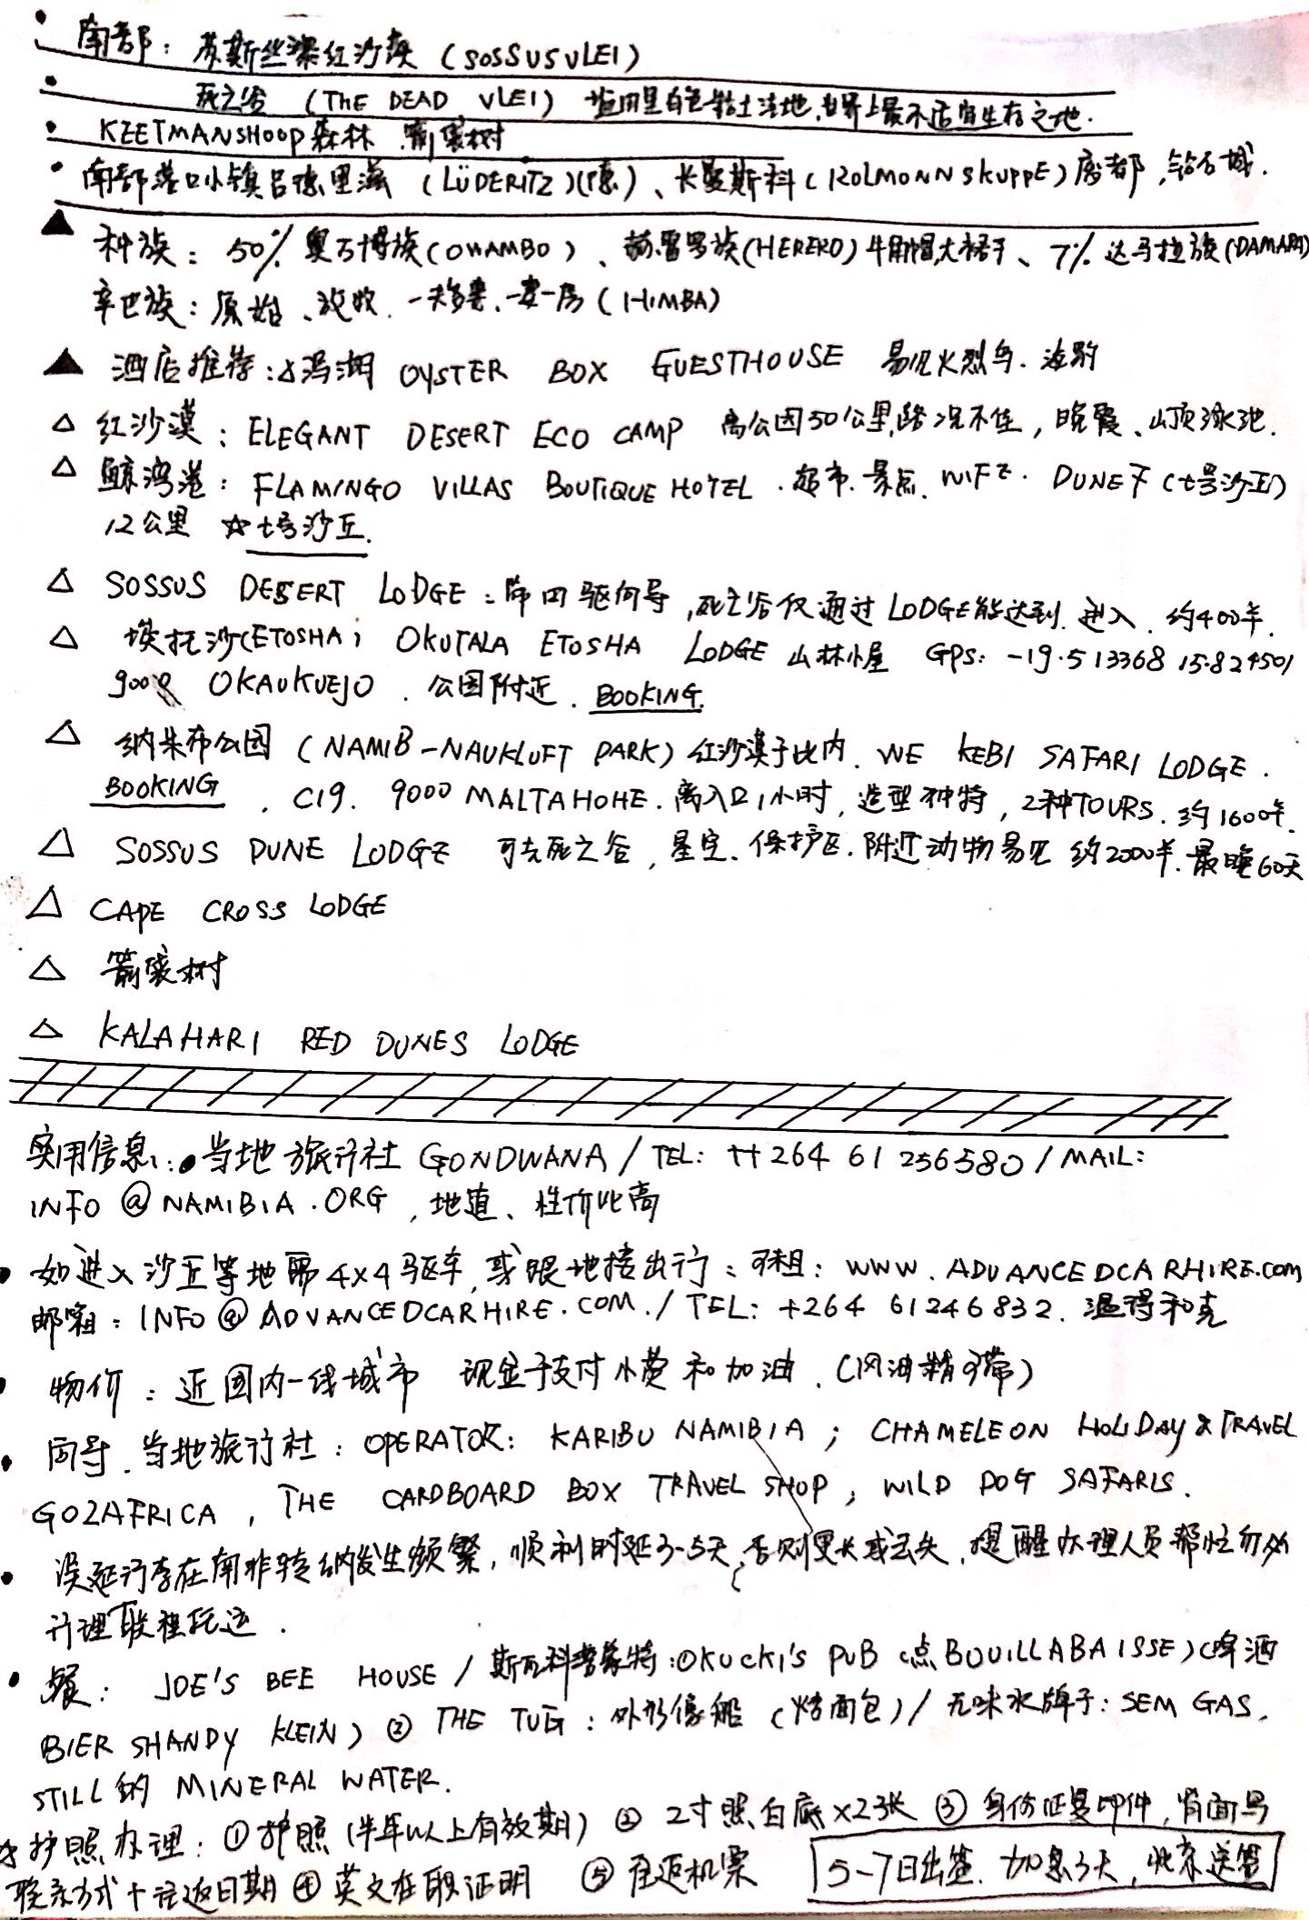 南部：苏斯丝漯红沙漠（SOSSUSVLEI）
死之谷（THE DEAD VLEI）黏土洼地,世界上最不适宜生存之地.
KEETMANSHOOP 森林.箭袋树
南部港口小镇吕德里滋（LÜDERITZ）(德)、长曼斯科（KOLMONNSKUPPE）废都,钻石城.
种族：50% 奥万博族(OWAMBO）、赫雷罗族(HERERO)牛角帽,大裙子、7% 达马拉族(DAMARA)
辛巴族：原始、放牧.一夫多妻、一妻一房（HIMBA）
酒店推荐： OYSTER BOX GUESTHOUSE 易见火烈鸟.海豹
红沙漠：ELEGANT DESERT ECO CAMP 离公园50公里,路况不佳，晚霞、山顶泳池.
鲸湾港：FLAMINGO VILLAS BOUTIQUE HOTEL .超市.景点. WIFI. DUNE 7（七号沙丘）
12公里 ☆七号沙丘.
SOSSUS DESERT LODGE：带四驱向导,死之谷仅通过LODGE能达到.进入.约400羊.
埃托沙(ETOSHA)；OKUTALA ETOSHA LODGE 山林小屋 GPS: -19.513368 15.824501
9000 OKAUKUEJO .公园附近. BOOKING.
纳米布公园（NAMIB-NAUKLUFT PARK）红沙漠于此内. WE KEBI SAFARI LODGE.
BOOKING , C19. 9000 MALTAHOHE.离入口1小时,造型独特,2种TOURS.约1600羊.
SOSSUS DUNE LODGE 可去死之谷,星空、保护区.附近动物易见 约2000羊.最晚60天
CAPE CROSS LODGE
箭袋树
KALAHARI RED DUNES LODGE
实用信息：当地旅行社 GONDWANA / TEL: ++264 61 256580 / MAIL:
INFO @ NAMIBIA.ORG ,地道、性价比高
如进入沙丘等地需4X4驱车,或跟地接出行：可租：WWW.ADVANCEDCARHIRE.COM
邮箱：INFO @ ADVANCEDCARHIRE.COM./ TEL: +264 61246832.温得和克
物价：近国内一线城市 现金于支付小费和加油.（风油精可带）
向导.当地旅行社：OPERATOR: KARIBU NAMIBIA ; CHAMELEON HOLIDAY & TRAVEL
GO2AFRICA , THE CARDBOARD BOX TRAVEL SHOP ; WILD DOG SAFARIS.
误延行李在南非转纳发生频繁,顺利时延3-5天,否则更长或丢失,提醒办理人员帮忙勿必
行理联程托运.
餐：JOE'S BEE HOUSE / 斯瓦科普蒙特:①KUCKI'S PUB（点BOUILLABAISSE）(啤酒
BIER SHANDY KLEIN）② THE TUG：外形像船（烤面包）/ 无味水牌子：SEM GAS,
STILL的 MINERAL WATER.
☆护照办理：①护照（半年以上有效期）② 2寸照白底×2张 ③身份证复印件,背面写
联系方式+往返日期 ④英文在职证明 ⑤往返机票 5-7日出签.加急3天,北京送签